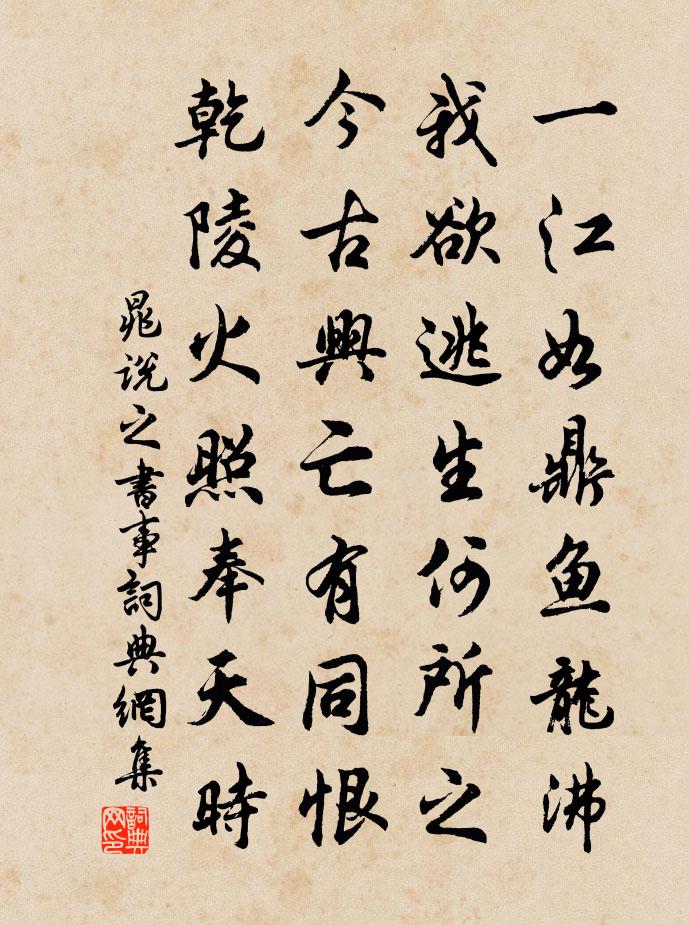 一江如鼎魚龍沸
我欲逃生何所之
今古興亡有同恨
乾陵火照奉天時
晁説之書事詞典網集
詞典网印